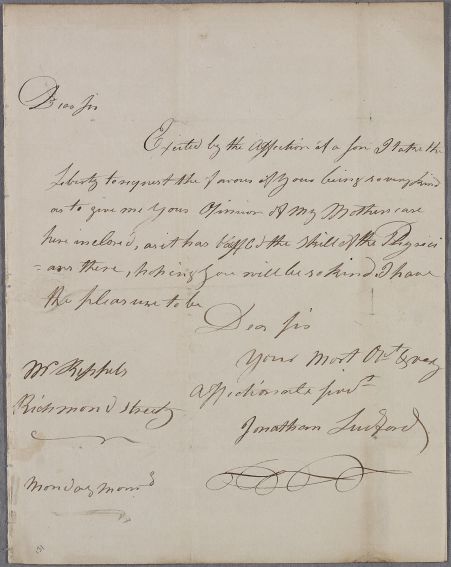 Dear Sir
Excited by the Affection of a Son I take the
Liberty to request the favour of Your being so very kind
as to give me Your Opinion of My Mothers case
here inclos'd, as it has baffled the skill of the Physici
=ans there, hoping you will be so kind. I have
the pleasure to be
Dear Sir
Your Most Obt & very
affectionate servt
Jonathan
Mr
Richmond Street
Monday Morng